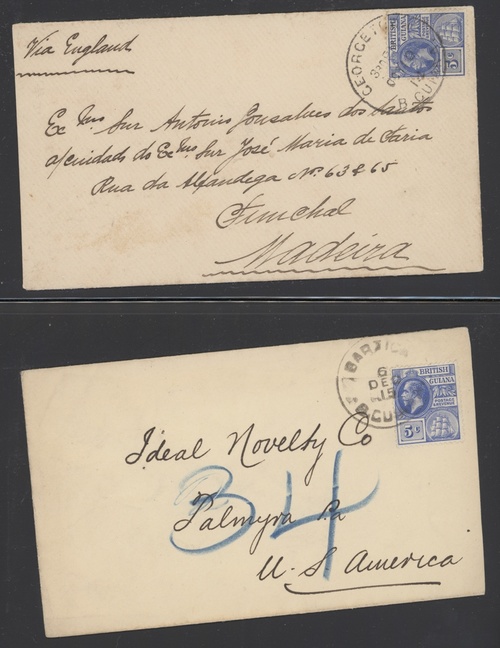 Via England
GEORGE
BRITISH GUIANA
5 c
Ex.mo Snr Antonio Gonsalves dos Santos
a/cuidado do Ex.mo Snr José Maria de Faria
Rua da Alfandega No. 63 & 65
Funchal
Madeira
BARTICA
6
DEC
15
BRITISH
GUIANA
POSTAGE
5 c
Ideal Novelty Co
34
Palmyra Pa
U. S. America